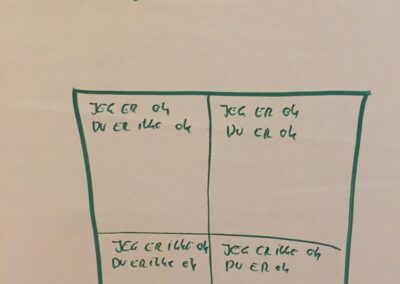 JEG ER OK
DU ER ikke ok
JEG ER OK
DU ER ok
JEG ER ikke ok
DU ER ikke ok
JEG ER ikke ok
DU ER ok